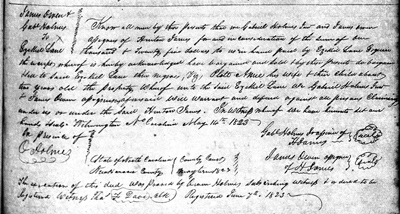 James Owen &
Gabl Holmes
To
Ezekiel Lane
Know all men by these presents that we Gabriel Holmes Junr and James Owen
assignees of Hinton James for and in consideration of the sum of one
thousand & twenty five dollars to us in hand paid by Ezekiel Lane Esquire
the receipt whereof is hereby acknowledged have bargained and sold & by these presents do bargain
sell to said Ezekiel Lane three negroes, Viz his wife & their child about
two years old the property whereof unto the said Ezekiel Lane we Gabriel Holmes Junr
James Owen assignees aforesaid will warrant and defend against all persons claiming
under us or under the said Hinton James. In witness whereof we have hereunto set our
hands & seals. Wilmington No Carolina May 14th 1823
In presence of
O Holmes
Gabl Holmes Jr assignee of
H James (seal)
James Owen assignee
of H James (seal)
State of North Carolina
New Hanover County
County Court
1823
The execution of this deed was proved by Owen Holmes subscribing witness & ordered to be
registered Witness Thos F Davis Clk
Registered June 7th 1823